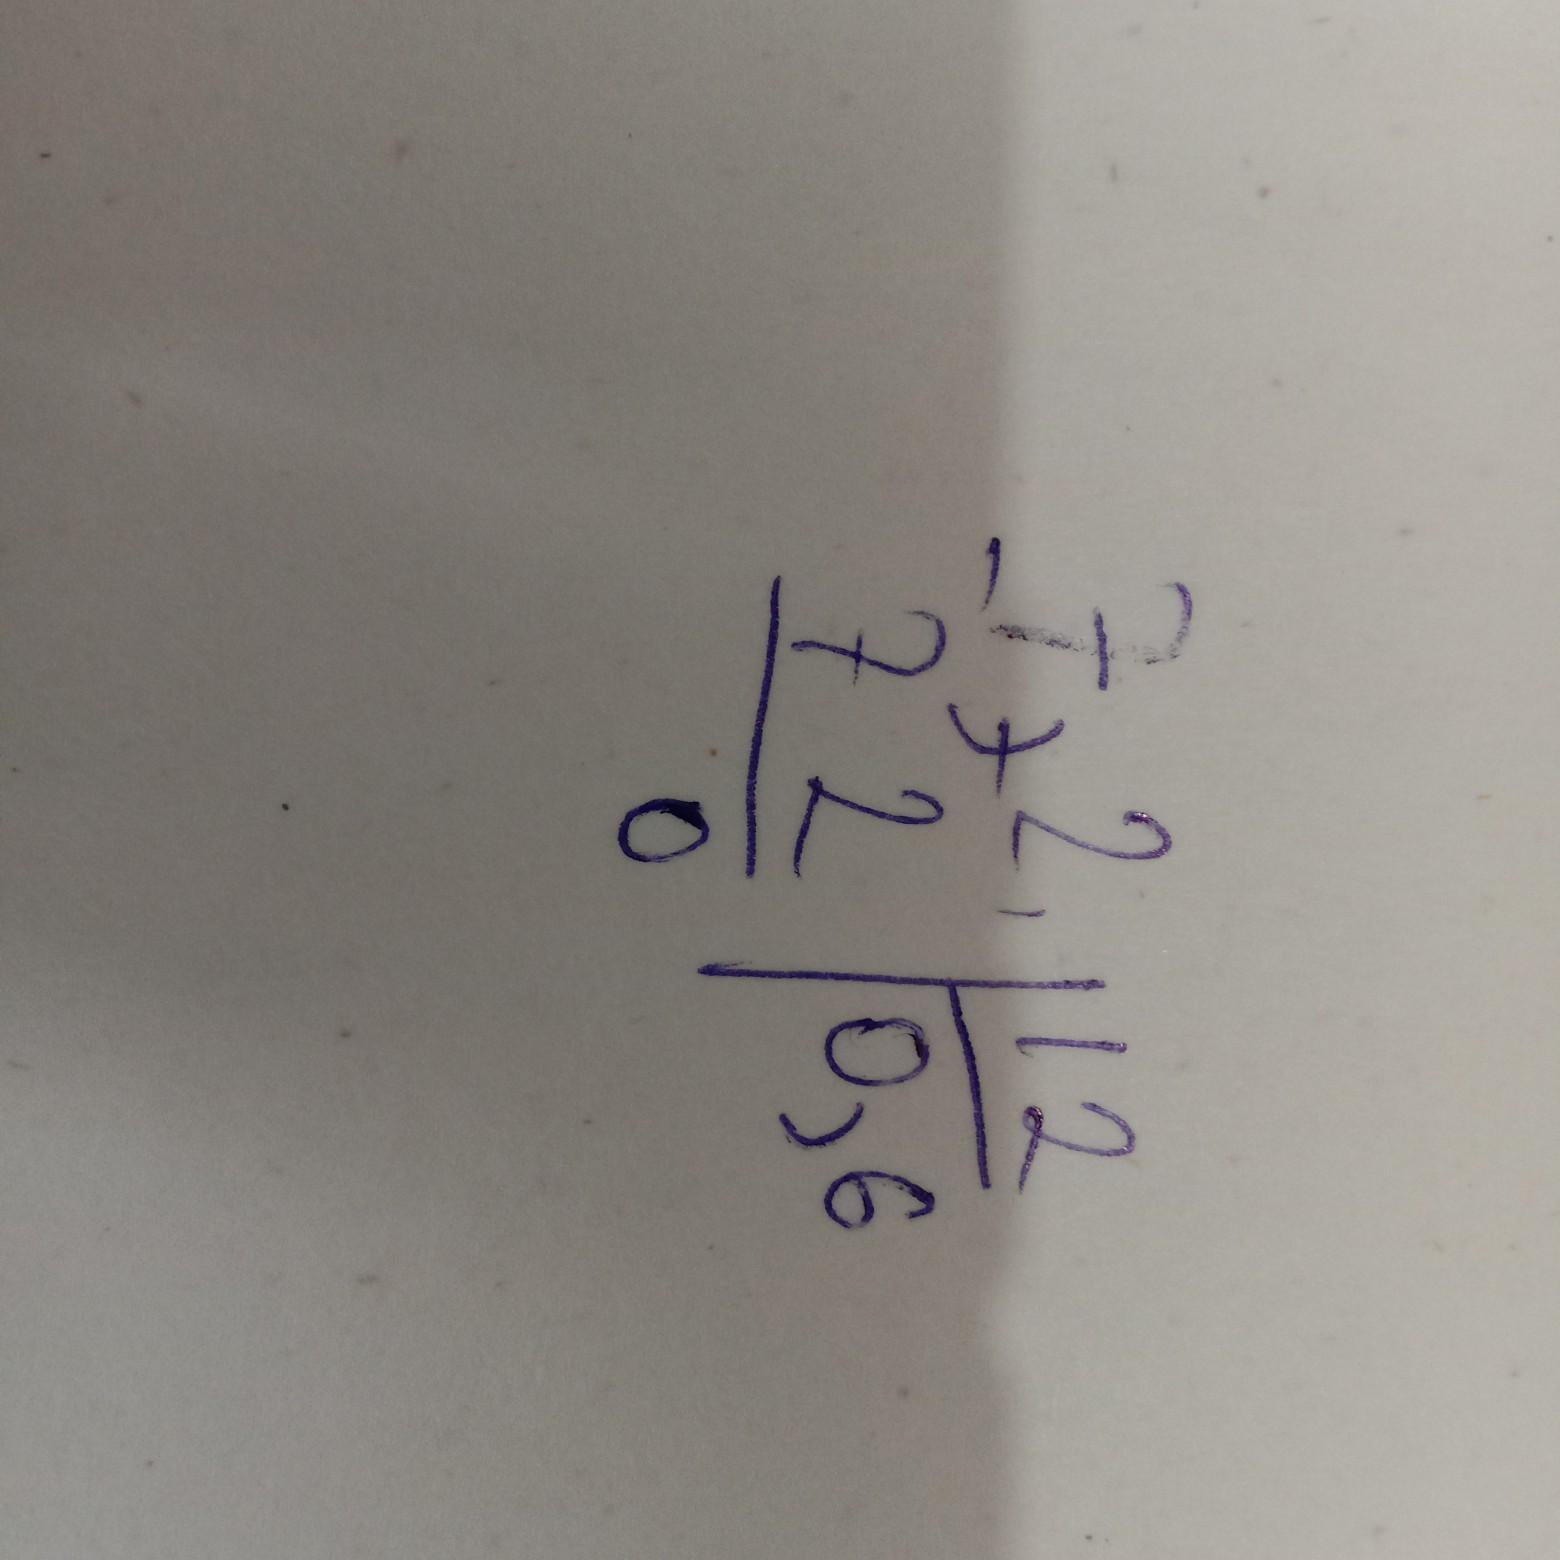 - 7,2 | 12
72 | 0,6
0